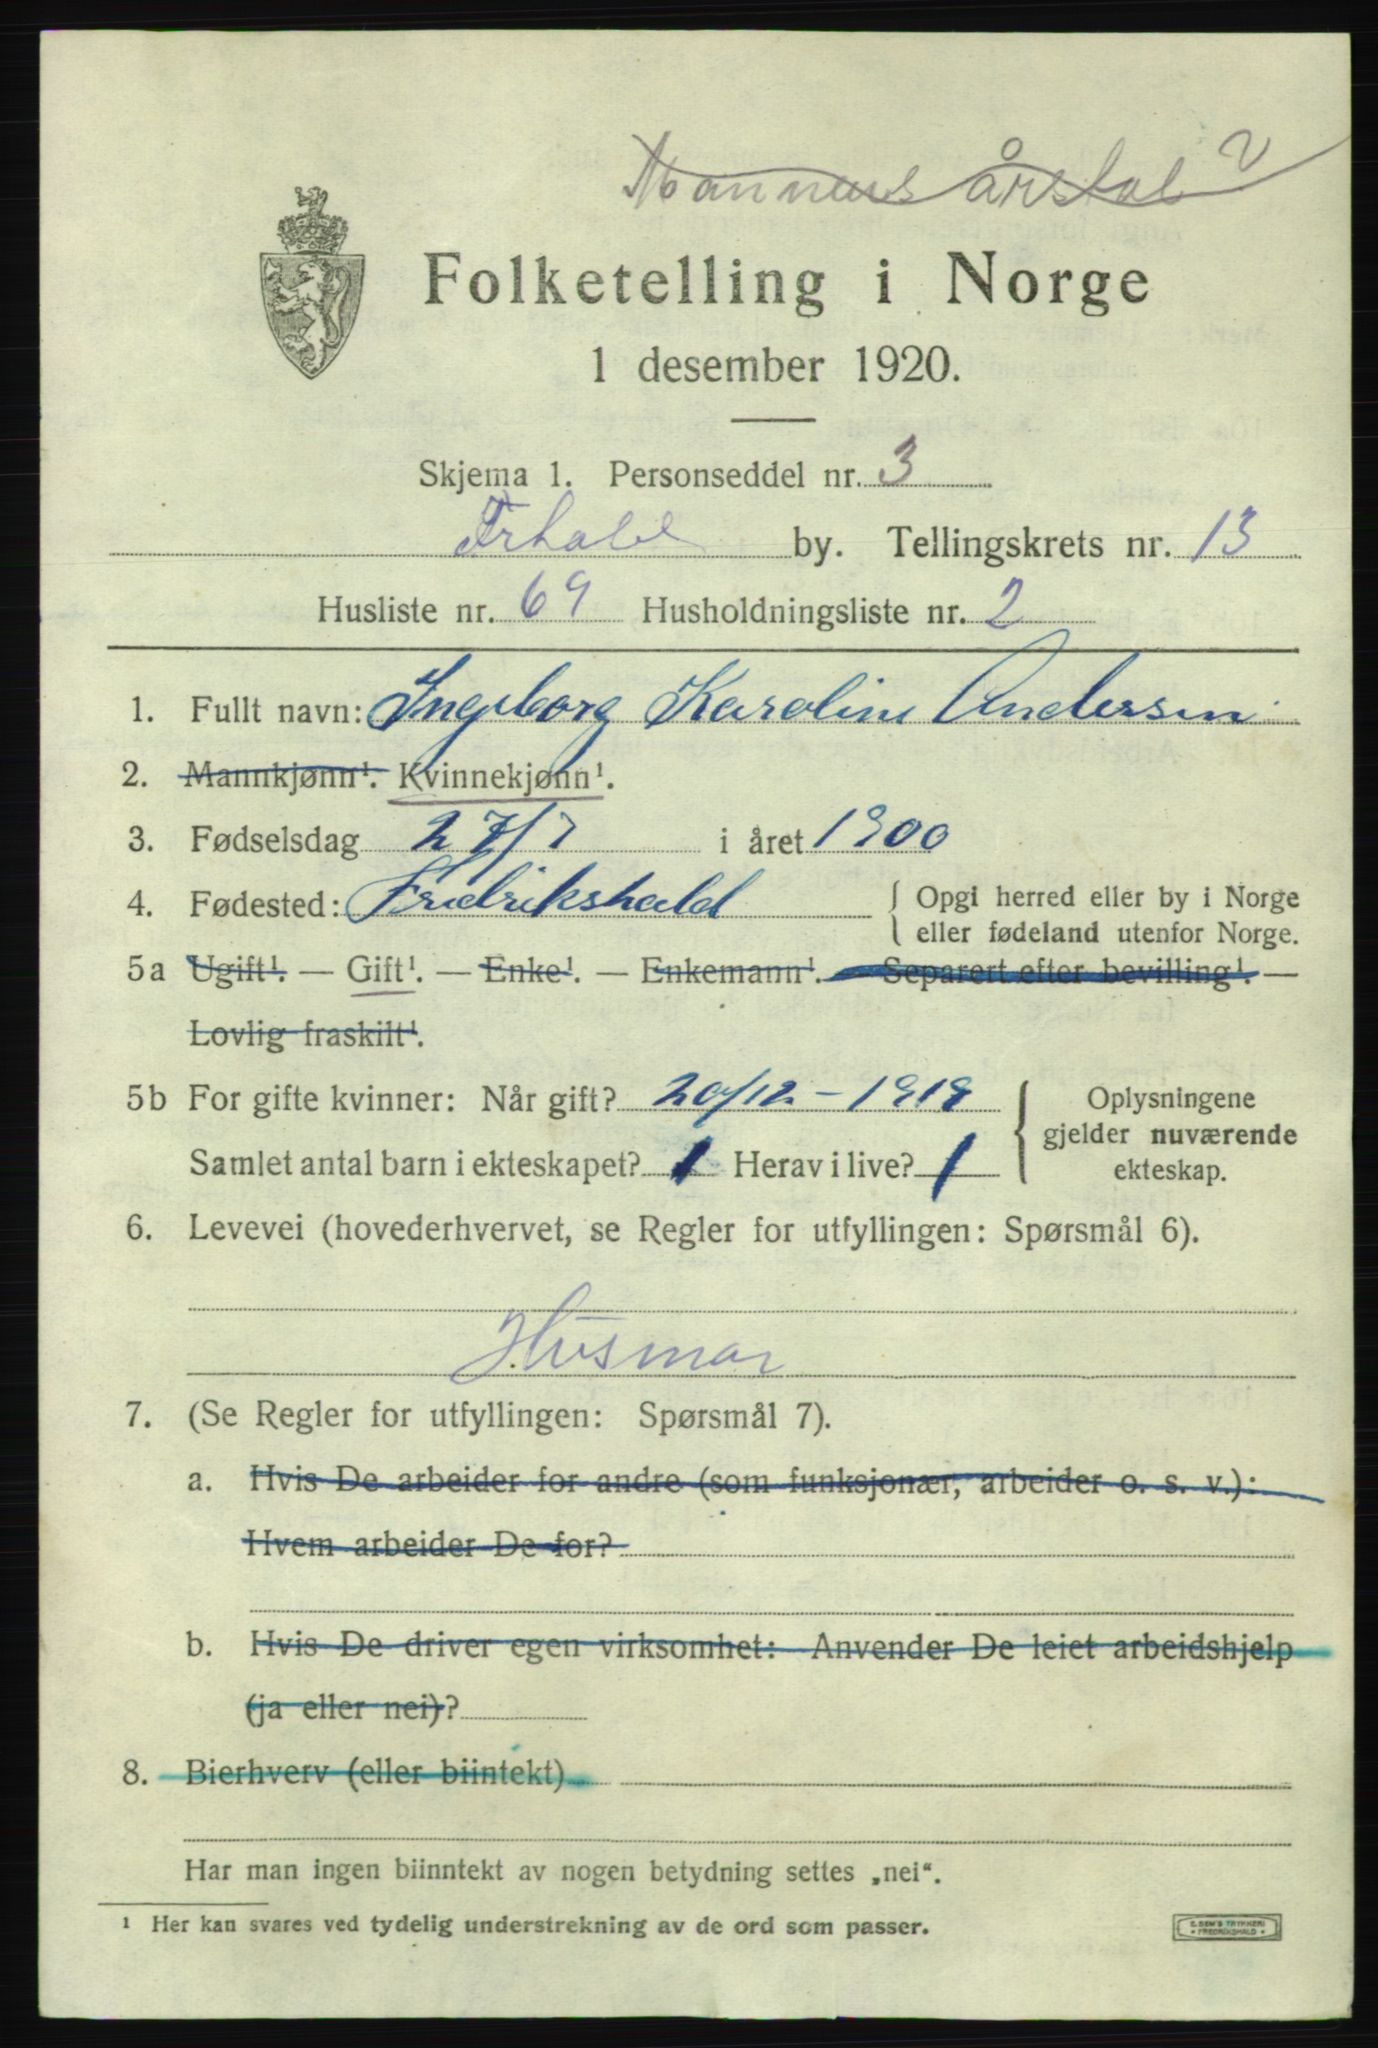 Mannens årstal
Folketelling i Norge
1 desember 1920.
Skjema 1. Personseddel nr. 3
Frhald by. Tellingskrets nr. 13
Husliste nr. 69 Husholdningsliste nr. 2
1. Fullt navn: Ingeborg Karoline Andersen
2. Mannkjønn¹. Kvinnekjønn¹.
3. Fødselsdag 27/7 i året 1900
4. Fødested: Fredrikshald { Opgi herred eller by i Norge
eller fødeland utenfor Norge.
5a Ugift¹. — Gift¹. — Enke¹. — Enkemann¹. — Separert efter bevilling¹. —
Lovlig fraskilt¹.
5b For gifte kvinner: Når gift? 20/12 - 1919
Samlet antal barn i ekteskapet? 1 Herav i live? 1
Oplysningene
gjelder nuværende
ekteskap.
6. Levevei (hovederhvervet, se Regler for utfyllingen: Spørsmål 6).
Husmor
7. (Se Regler for utfyllingen: Spørsmål 7).
a. Hvis De arbeider for andre (som funksjonær, arbeider o. s. v.):
Hvem arbeider De for?
b. Hvis De driver egen virksomhet: Anvender De leiet arbeidshjelp
(ja eller nei)?
8. Bierhverv (eller biintekt)
Har man ingen biinntekt av nogen betydning settes „nei“.
¹ Her kan svares ved tydelig understrekning av de ord som passer.
E. SEM'S TRYKKERI
• FREDRIKSHALD •